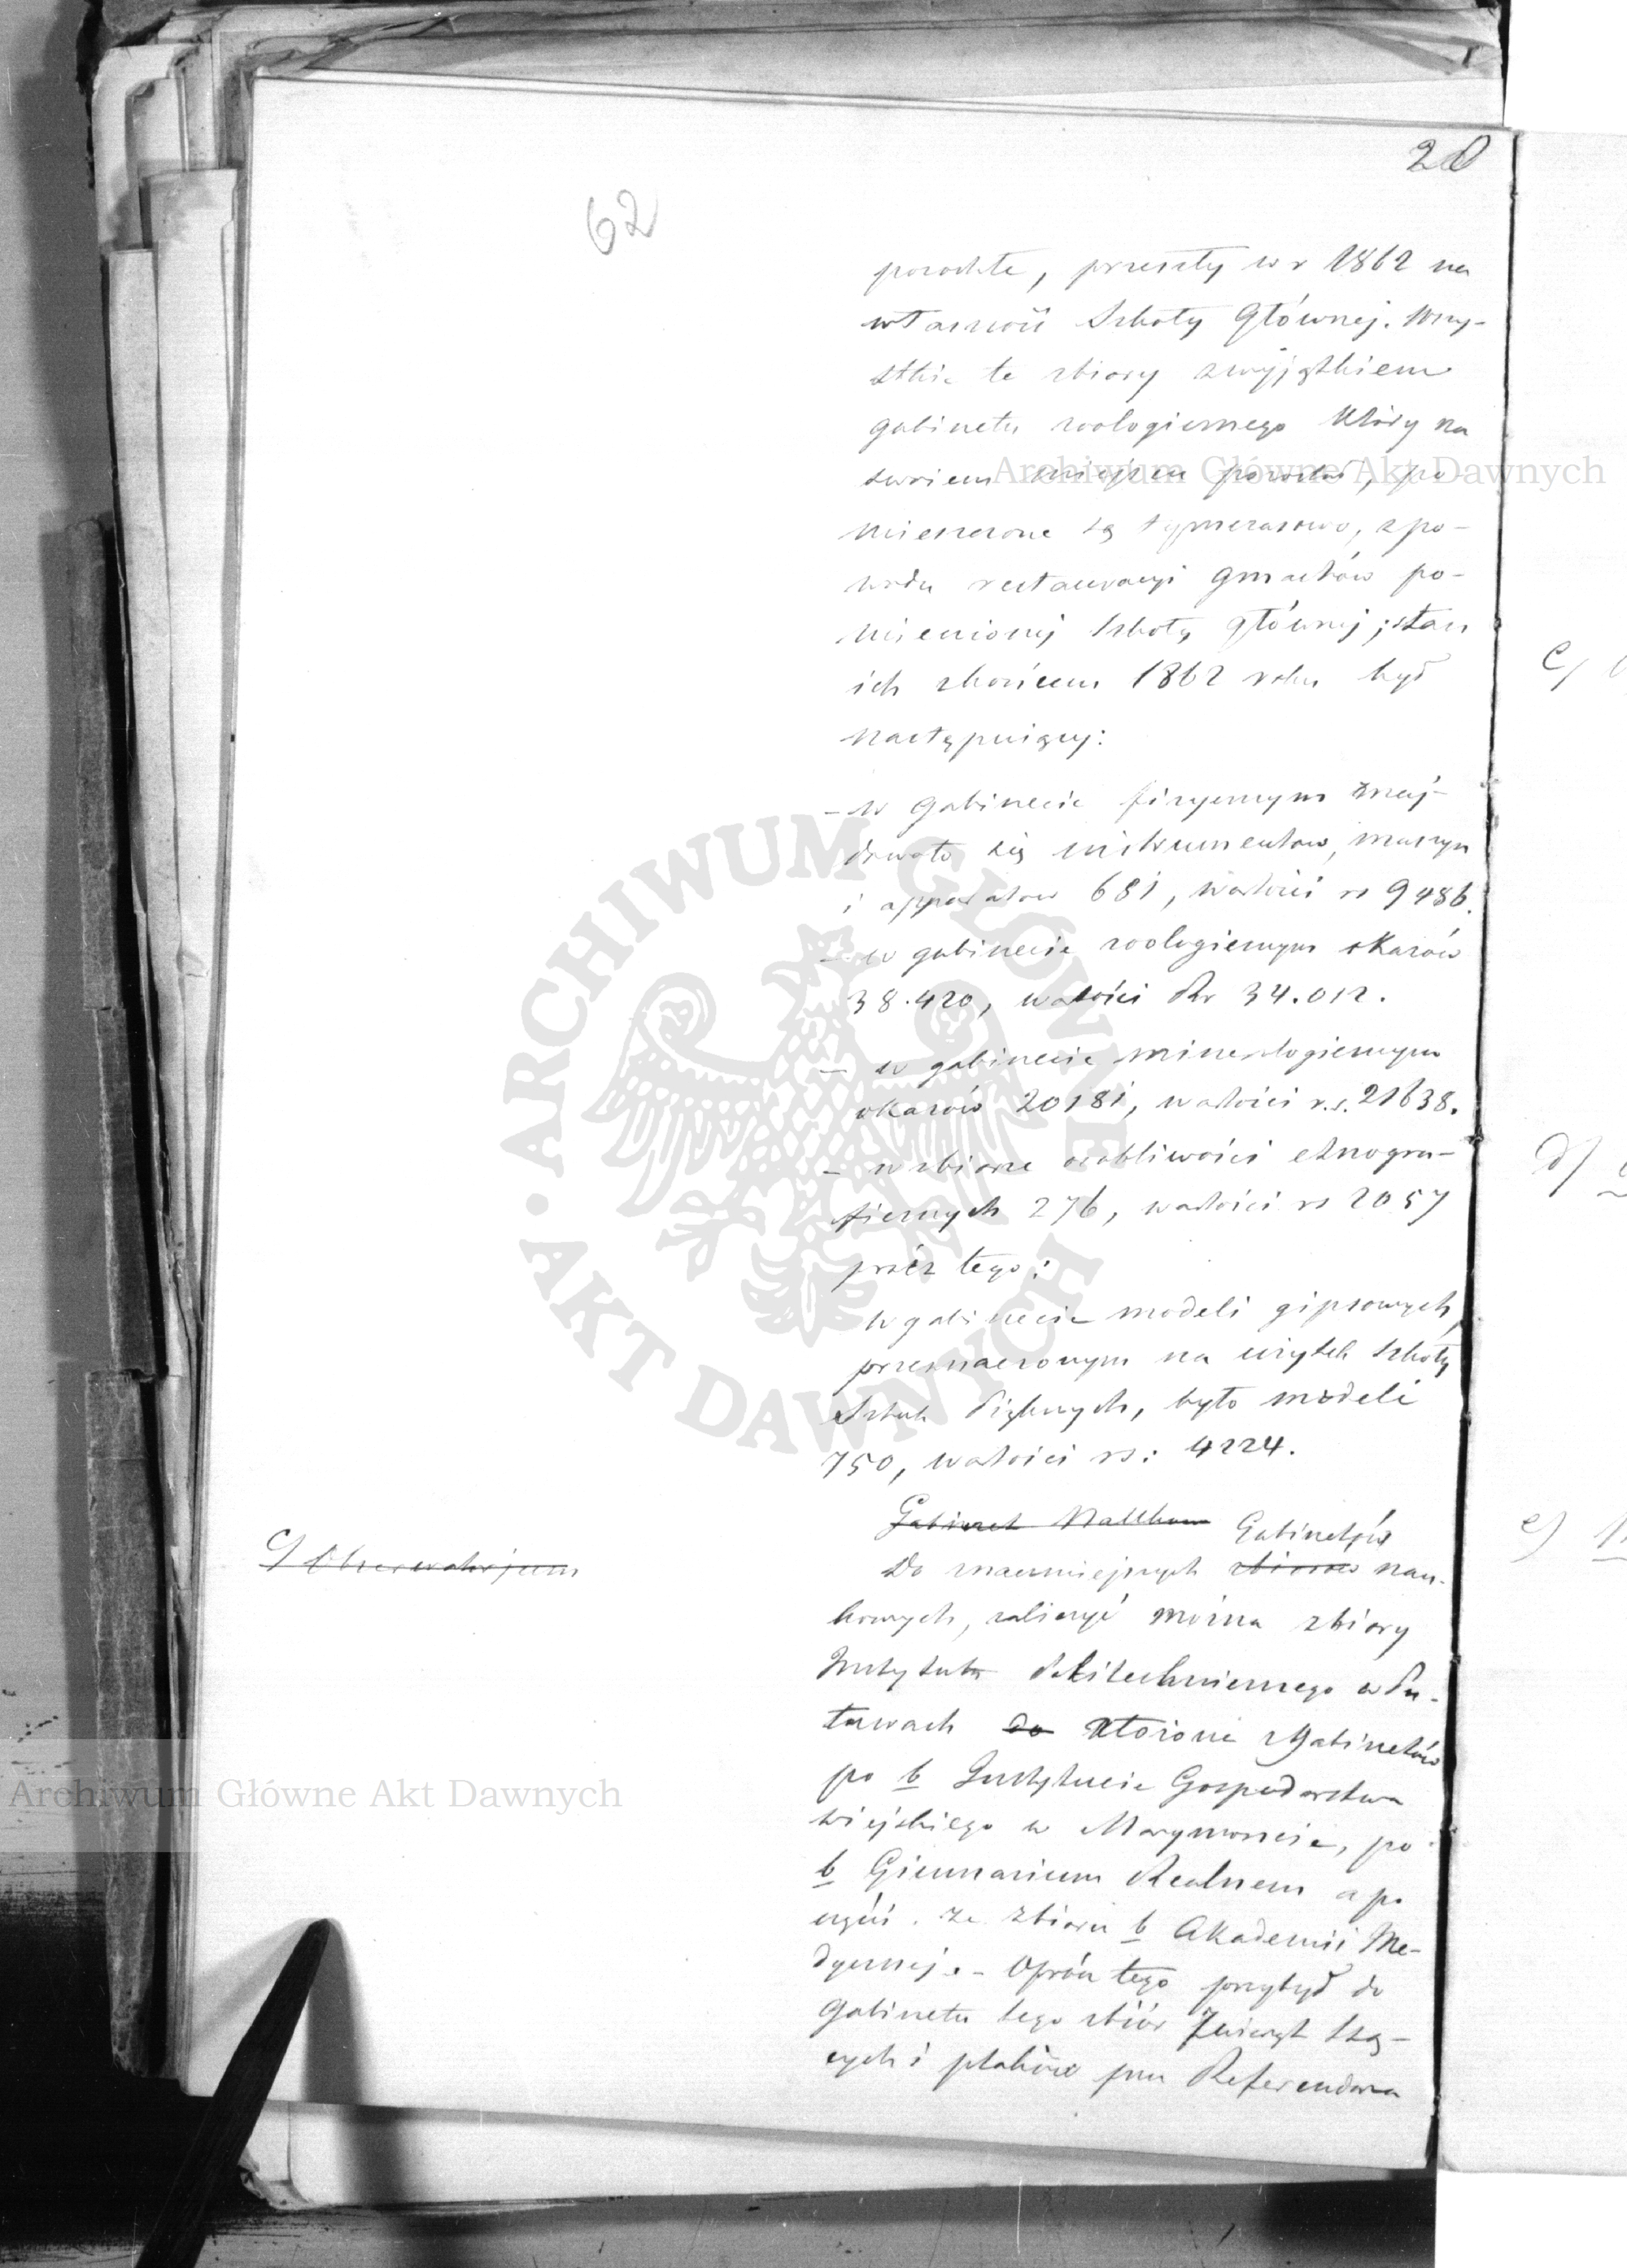 20
62
pozostałe, przeszły w r 1862 na
własność Szkoły Głównej. Wszy-
stkie te zbiory z wyjątkiem
gabinetu zoologicznego który na
swoiem miejscu pozostał, po
mieszczone są tymczasowo, z po-
wodu restauracyi gmachów po-
mienionej Szkoły głównej; stan
ich z końcem 1862 roku był
następuiący:
– w gabinecie fizycznym znaj-
dowało się instrumentow, maszyn
i apparatow 681, wartości rs 9486.
– w gabinecie zoologicznym okazów
38.420, wartości Rs 34.012.
– w gabinecie mineralogicznym
okazów 20181, wartości r.s. 21638.
– w zbiorze osobliwości etnogra-
ficznych 276, wartości rs 2057
prócz tego:
w gabinecie modeli gipsowych,
przeznaczonym na użytek Szkoły
Sztuk Pięknych, było modeli
750, wartości rs: 4224.
Gabinet
Gabinetów
c/ Observatorjum
Do znaczniejszych zbiorów nau-
kowych, zaliczyć można zbiory
Instytutu Politechnicznego w Pu-
ławach do złożone z Gabinetów
po b Instytucie Gospodarstwa
wiejskiego w Marymoncie, po
b Gimnazium Realnem a po
części ze zbioru b Akademii Me-
dycznej. – Oprócz tego przybył do
Gabinetu tego zbiór Zwierząt ssą-
cych i ptaków pna Referendarza
c/
d/
e)
Archiwum Główne Akt Dawnych
ARCHIWUM GŁÓWNE • AKT DAWNYCH
Archiwum Główne Akt Dawnych